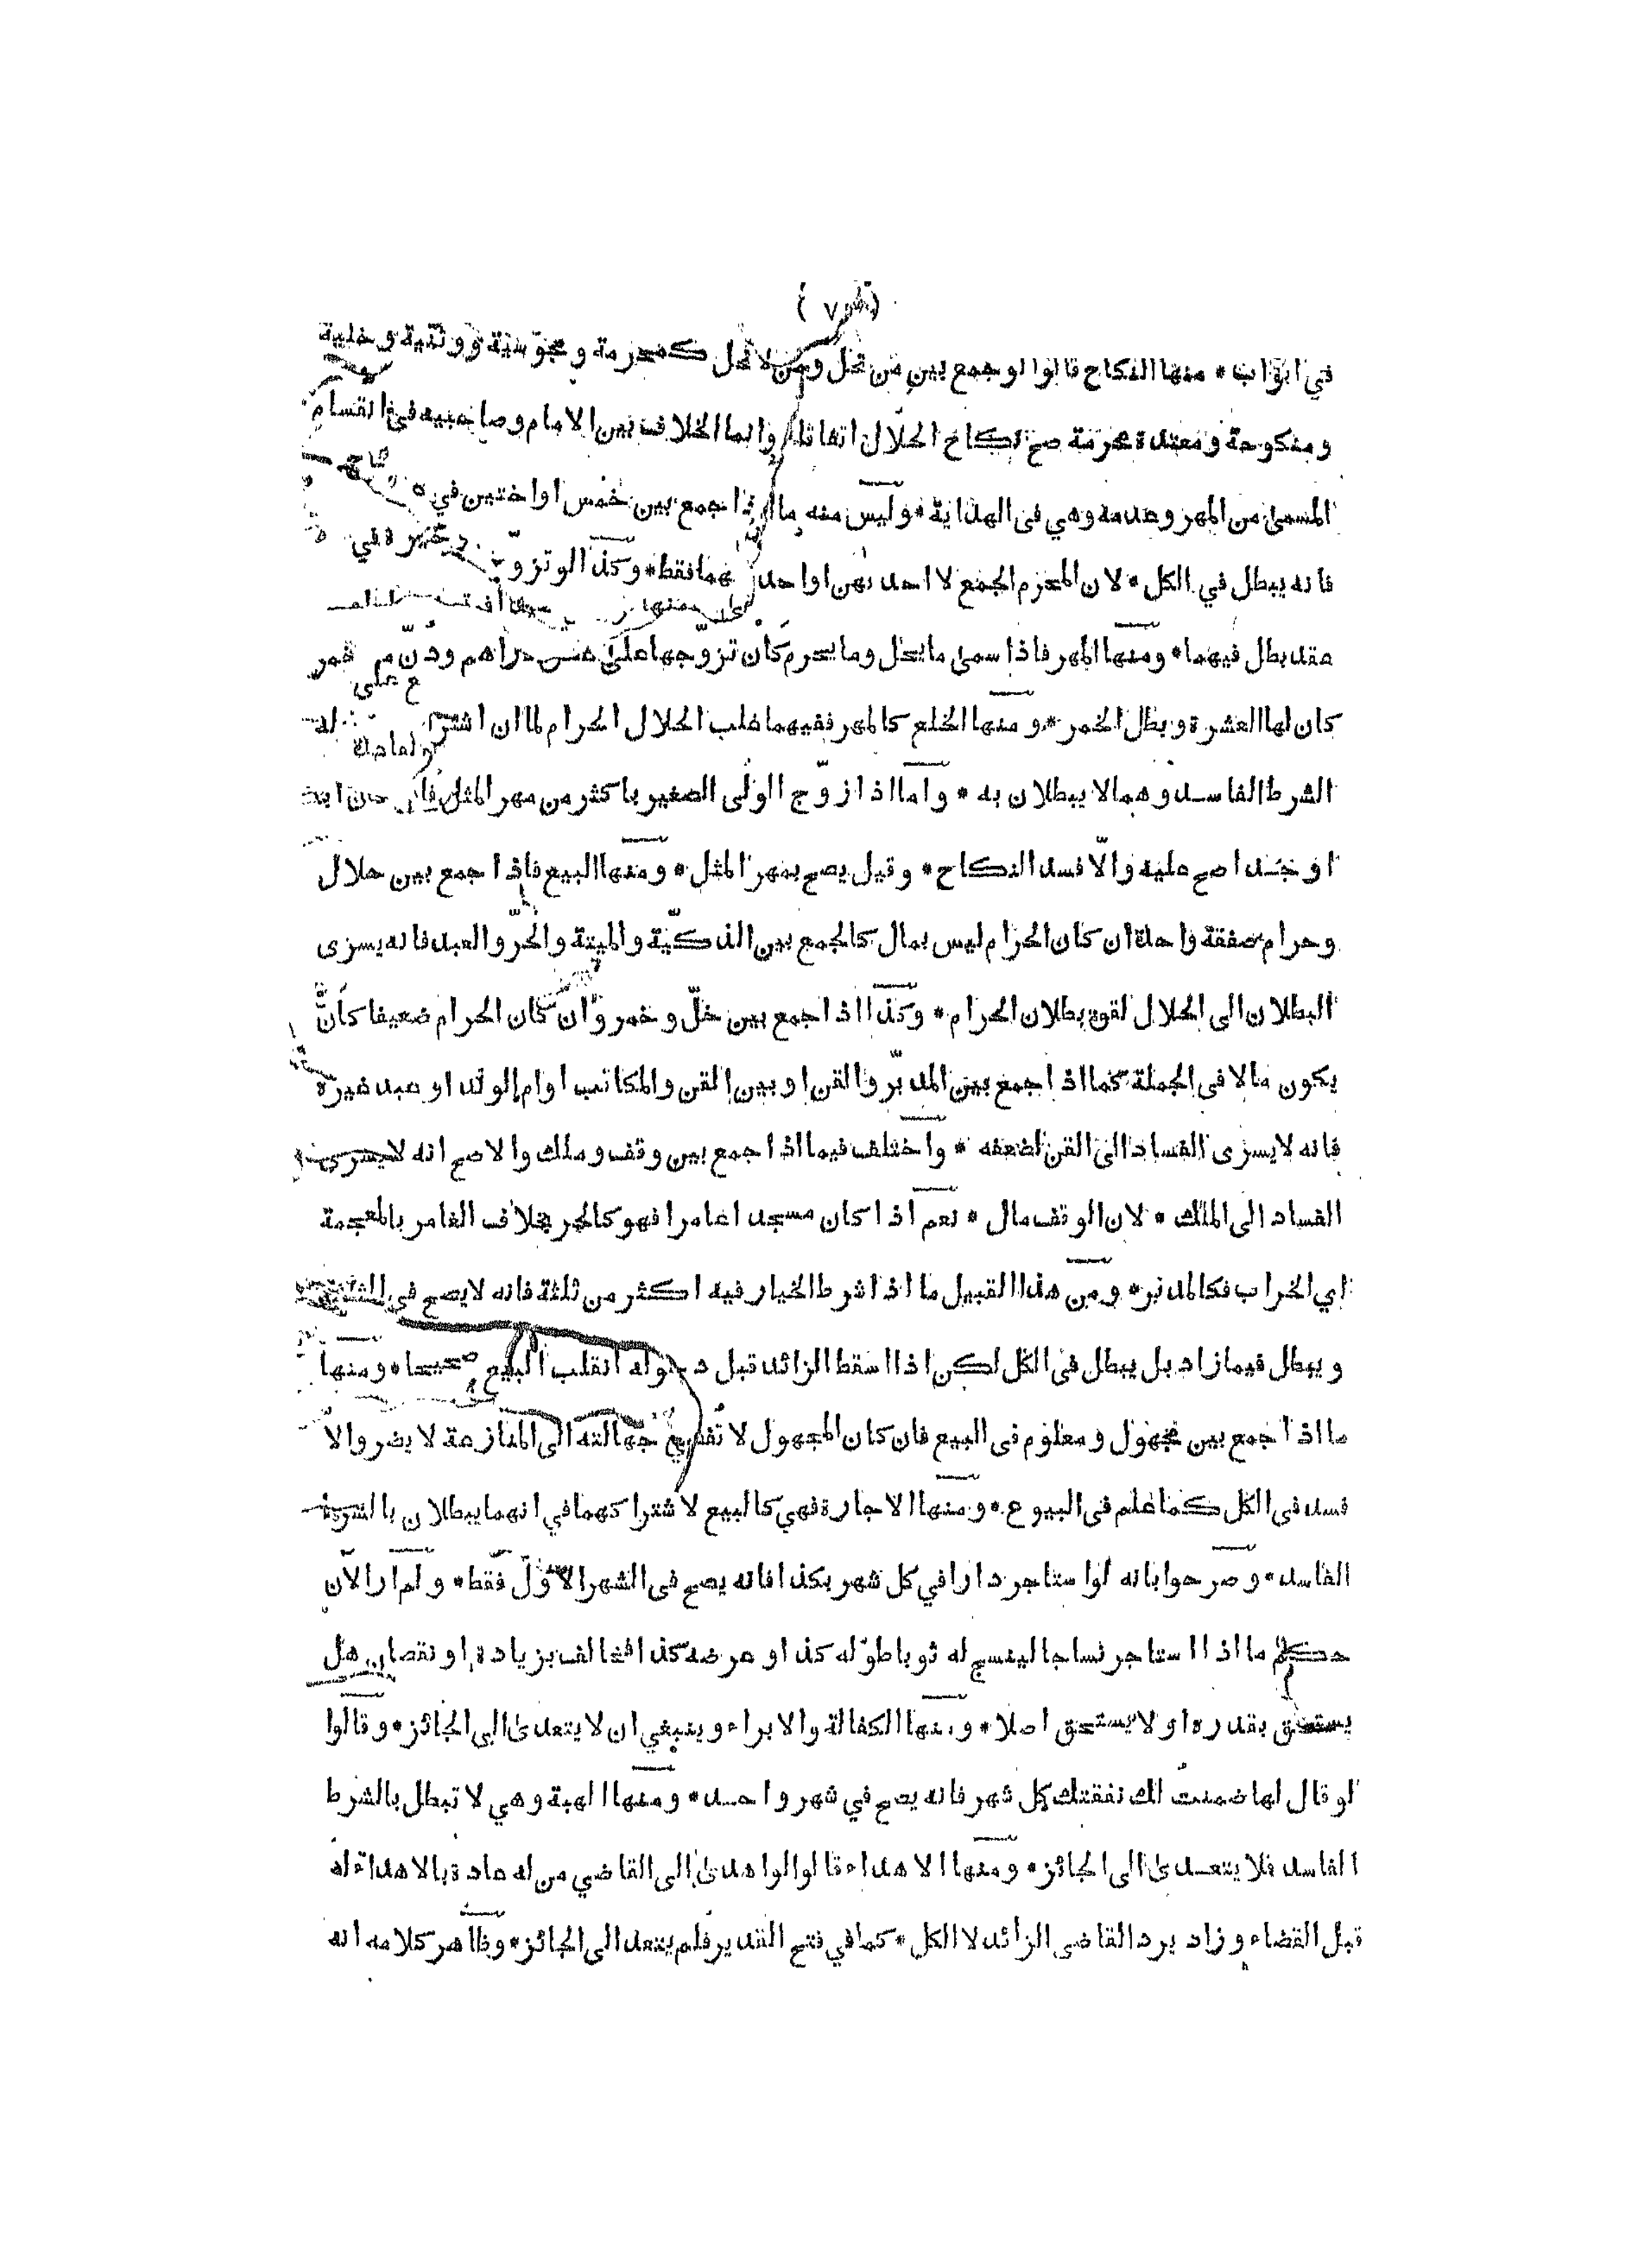 في ابواب * منها النكاح قالوا لو جمع بين من تحل ومن لا تحل كمحرمة ومجوسية ووثنية وخلية
ومنكوحة ومعتدة محرمة صح نكاح الحلال اتفاقا وانما الخلاف بين الامام وصاحبيه فى انقسام
المسمى من المهر وعدمه وهي فى الهداية * وليس منه ما اذا جمع بين خمس او اختين في
فانه يبطل في الكل * لان المحرم الجمع لا احدهن او احد هما فقط * وكذا لو تزوج في
عقد بطل فيهما * ومنها المهر فاذا سمى ما يحل وما يحرم كأن تزوجها على عشرة دراهم ودن خمر
كان لها العشرة وبطل الخمر * ومنها الخلع كالمهر ففيهما غلب الحلال الحرام لما ان
الشرط الفاسد وهما لا يبطلان به * واما اذا زوج الولى الصغير باكثر من مهر المثل فان كان ابا
او جدا صح عليه والا فسد النكاح * وقيل يصح بمهر المثل * ومنها البيع فاذا جمع بين حلال
وحرام صفقة واحدة ان كان الحرام ليس بمال كالجمع بين الذكية والميتة والحر والعبد فانه يسرى
البطلان الى الحلال لقوة بطلان الحرام * وكذا اذا جمع بين خل وخمر وان كان الحرام ضعيفا كأن
يكون مالا فى الجملة كما اذا جمع بين المدبر والقن او بين القن والمكاتب او ام الولد او عبد غيره
فانه لا يسرى الفساد الى القن لضعفه * واختلف فيما اذا جمع بين وقف وملك والاصح انه لا يسرى
الفساد الى الملك * لان الوقف مال * نعم اذا كان مسجدا عامرا فهو كالحر بخلاف الغامر بالمعجمة
اي الخراب فكالمدبر * ومن هذا القبيل ما اذا شرط الخيار فيه اكثر من ثلثة فانه لا يصح في الثلثة
ويبطل فيما زاد بل يبطل فى الكل لكن اذا اسقط الزائد قبل دخوله انقلب البيع صحيحا * ومنها
ما اذا جمع بين مجهول ومعلوم فى البيع فان كان المجهول لا تفضي جهالته الى المنازعة لا يضر والا
فسد فى الكل كما علم فى البيوع * ومنها الاجارة فهي كالبيع لاشتراكهما في انهما يبطلان بالشرط
الفاسد * وصرحوا بانه لو استاجر دارا في كل شهر بكذا فانه يصح فى الشهر الاول فقط * ولم ار الآن
حكم ما اذا استاجر نساجا لينسج له ثوبا طوله كذا وعرضه كذا فخالف بزيادة او نقصان هل
يستحق بقدره او لا يستحق اصلا * ومنها الكفالة والابراء وينبغي ان لا يتعدى الى الجائز * وقالوا
لو قال لها ضمنت لك نفقتك كل شهر فانه يصح في شهر واحد * ومنها الهبة وهي لا تبطل بالشرط
الفاسد فلا يتعدى الى الجائز * ومنها الاهداء قالوا لو اهدى الى القاضي من له عادة بالاهداء له
قبل القضاء وزاد يرد القاضى الزائد لا الكل * كما في فتح القدير فلم يتعد الى الجائز * وظاهر كلامه انه